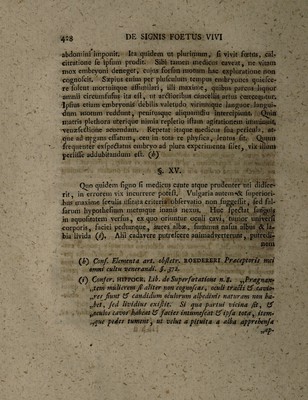 428 DE SIGNIS FOETUS VIVI
abdomini imponit. Ita quidem ut plurimum, si vivit foetus, cal-
citratione se ipsum prodit. Sibi tamen medicus caveat, ne vitam
mox embryoni deneget, cujus forsan motum hac exploratione non
cognoscit. Saepius enim per plusculum tempus embryones quiesce-
re solent mortuique assimilari, illi maxime, quibus parcus liquor
amnii circumfusus ita est, ut arctioribus cancellis artus contingantur.
Ipsius etiam embryonis debilis valetudo vitamque languor langui-
dum motum reddunt, penitusque aliquamdiu intercipiunt. Quin
matris plethora uterique nimia repletio illum agitationem intimunt,
venaesectione solvendam. Repetat itaque medicus sua pericula, at-
que ad urgens effatum, ceu in tota re physica, lentus sit. Quum
frequenter exspectans embryo ad plura experimenta silet, vix illum
periisse addubitandum est. (h)
§. XV.
Quo quidem signo si medicus caute atque prudenter uti didice-
rit, in errorem vix incurrere potest. Vulgaris autem superiori-
bus maxime seculis usitata criteria observatio non suggessit, sed fal-
sarum hypothesium metuuntque inanis nexus. Huc spectat languis
in aqualientem versus, ex quo oriuntur oculi cavi, tumor universi
corporis, faciei pedumque, aures albae, summus nasus albus & la-
bia livida (i). Alii cadavere putrescere animadverterunt, putredi-
nem
(h) Conf. Elementa art. obstetr. ROEDERERI Praeceptoris mei
omni cultu venerandi. §. 572.
(i) Confer. HIPPOCR. Lib. de Superfoetatione n. 8. „Pragnan-
„tem mulierem si aliter non cognoscas, oculi tracti & cavio-
„res fiunt & candidum oculorum albedinis naturam non ha-
„bet, sed lividius existit. Si qua partui vicina sit, &
„oculos cavos habeat & facies intumescat & ipsa tota, item-
„que pedes tument, ut velut a pituita a alba apprehensa
„ap-